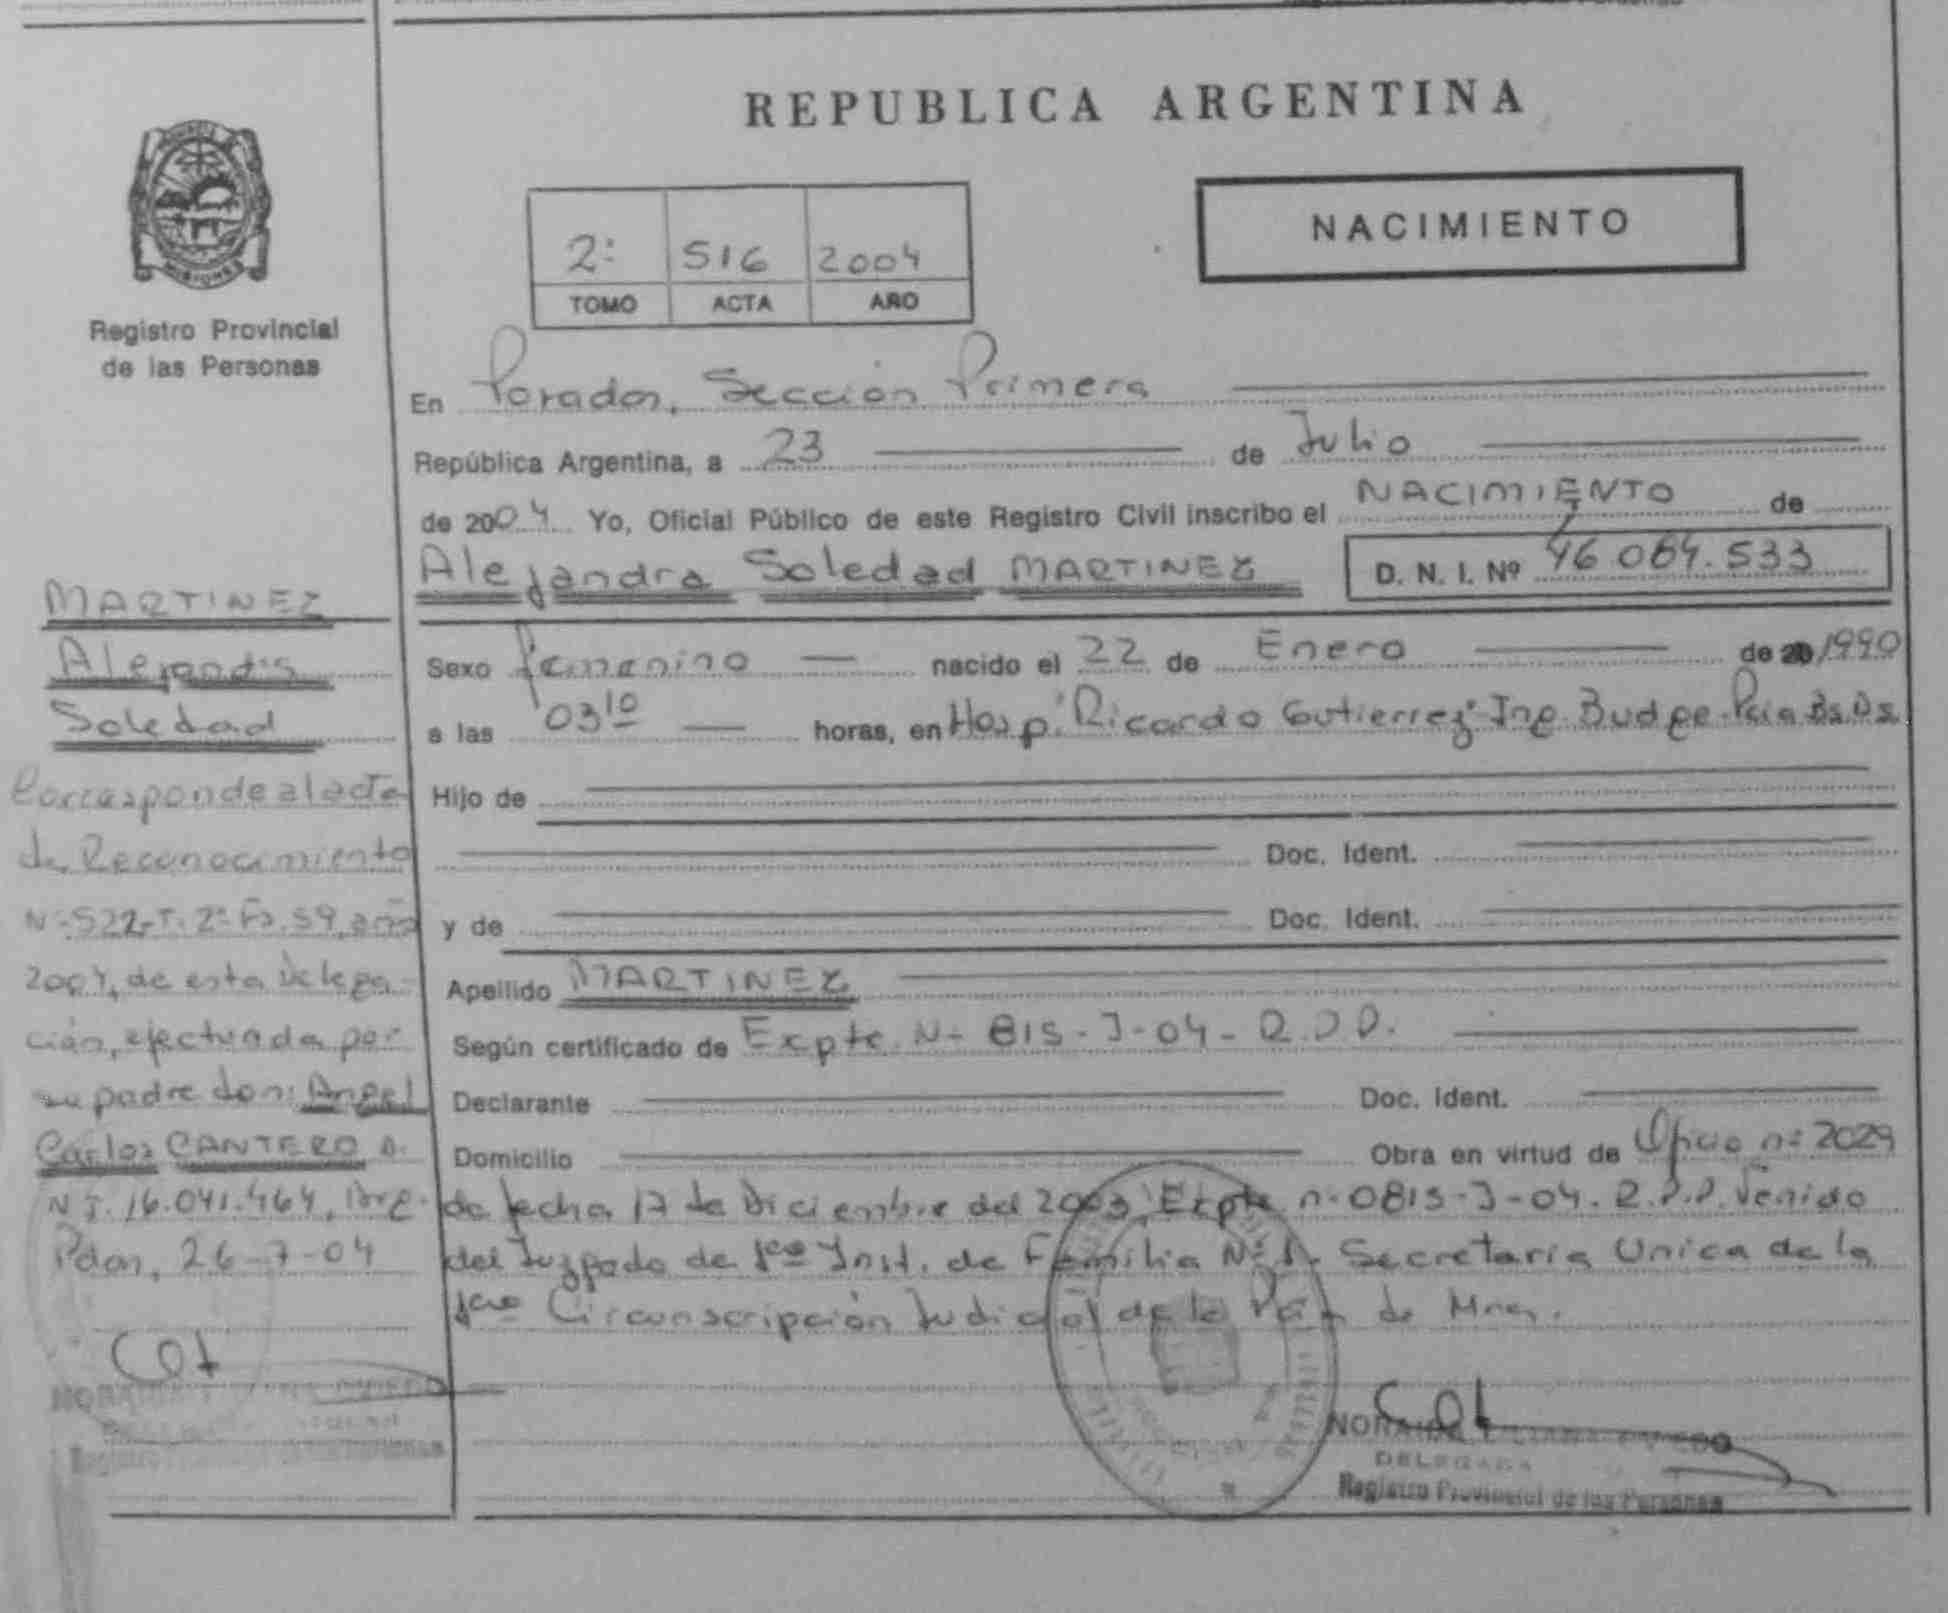 REPUBLICA ARGENTINA
NACIMIENTO
2: 516 2004
TOMO ACTA AÑO
MISIONES
Registro Provincial
de las Personas
En Posadas, Sección Primera
República Argentina, a 23 de Julio
de 2004 Yo, Oficial Público de este Registro Civil inscribo el NACIMIENTO de
Alejandra Soledad MARTINEZ D. N. I. Nº 46.064.533
Sexo femenino nacido el 22 de Enero de 1990
a las 03 10 horas, en Hosp. "Ricardo Gutierrez" Ing. Budge - Pcia Bs. As.
Hijo de
Doc. Ident.
y de Doc. Ident.
Apellido MARTINEZ
Según certificado de Expte. Nº 815-J-04-R.P.P.
Declarante Doc. Ident.
Domicilio Obra en virtud de Oficio nº 2029
de fecha 17 de Diciembre del 2003, Expte nº 0815-J-04. R.P.P. Venido
del Juzgado de 1ra Inst. de Familia Nº 1. Secretaria Unica de la
1ra Circunscripción Judicial de la Pcia de Mnes.
NORAIDA LILIANA
DELEGADA
Registro Provincial de las Personas
MARTINEZ
Alejandra
Soledad
Corresponde al acta
de Reconocimiento
Nº 522-T. 2º Fo. 59, año
2004, de esta Delega-
ción, efectuada por
su padre don: Angel
Carlos CANTERO D.
N I. 16.041.464, Arg.
Pdas, 26-7-04
Registro Provincial de las Personas